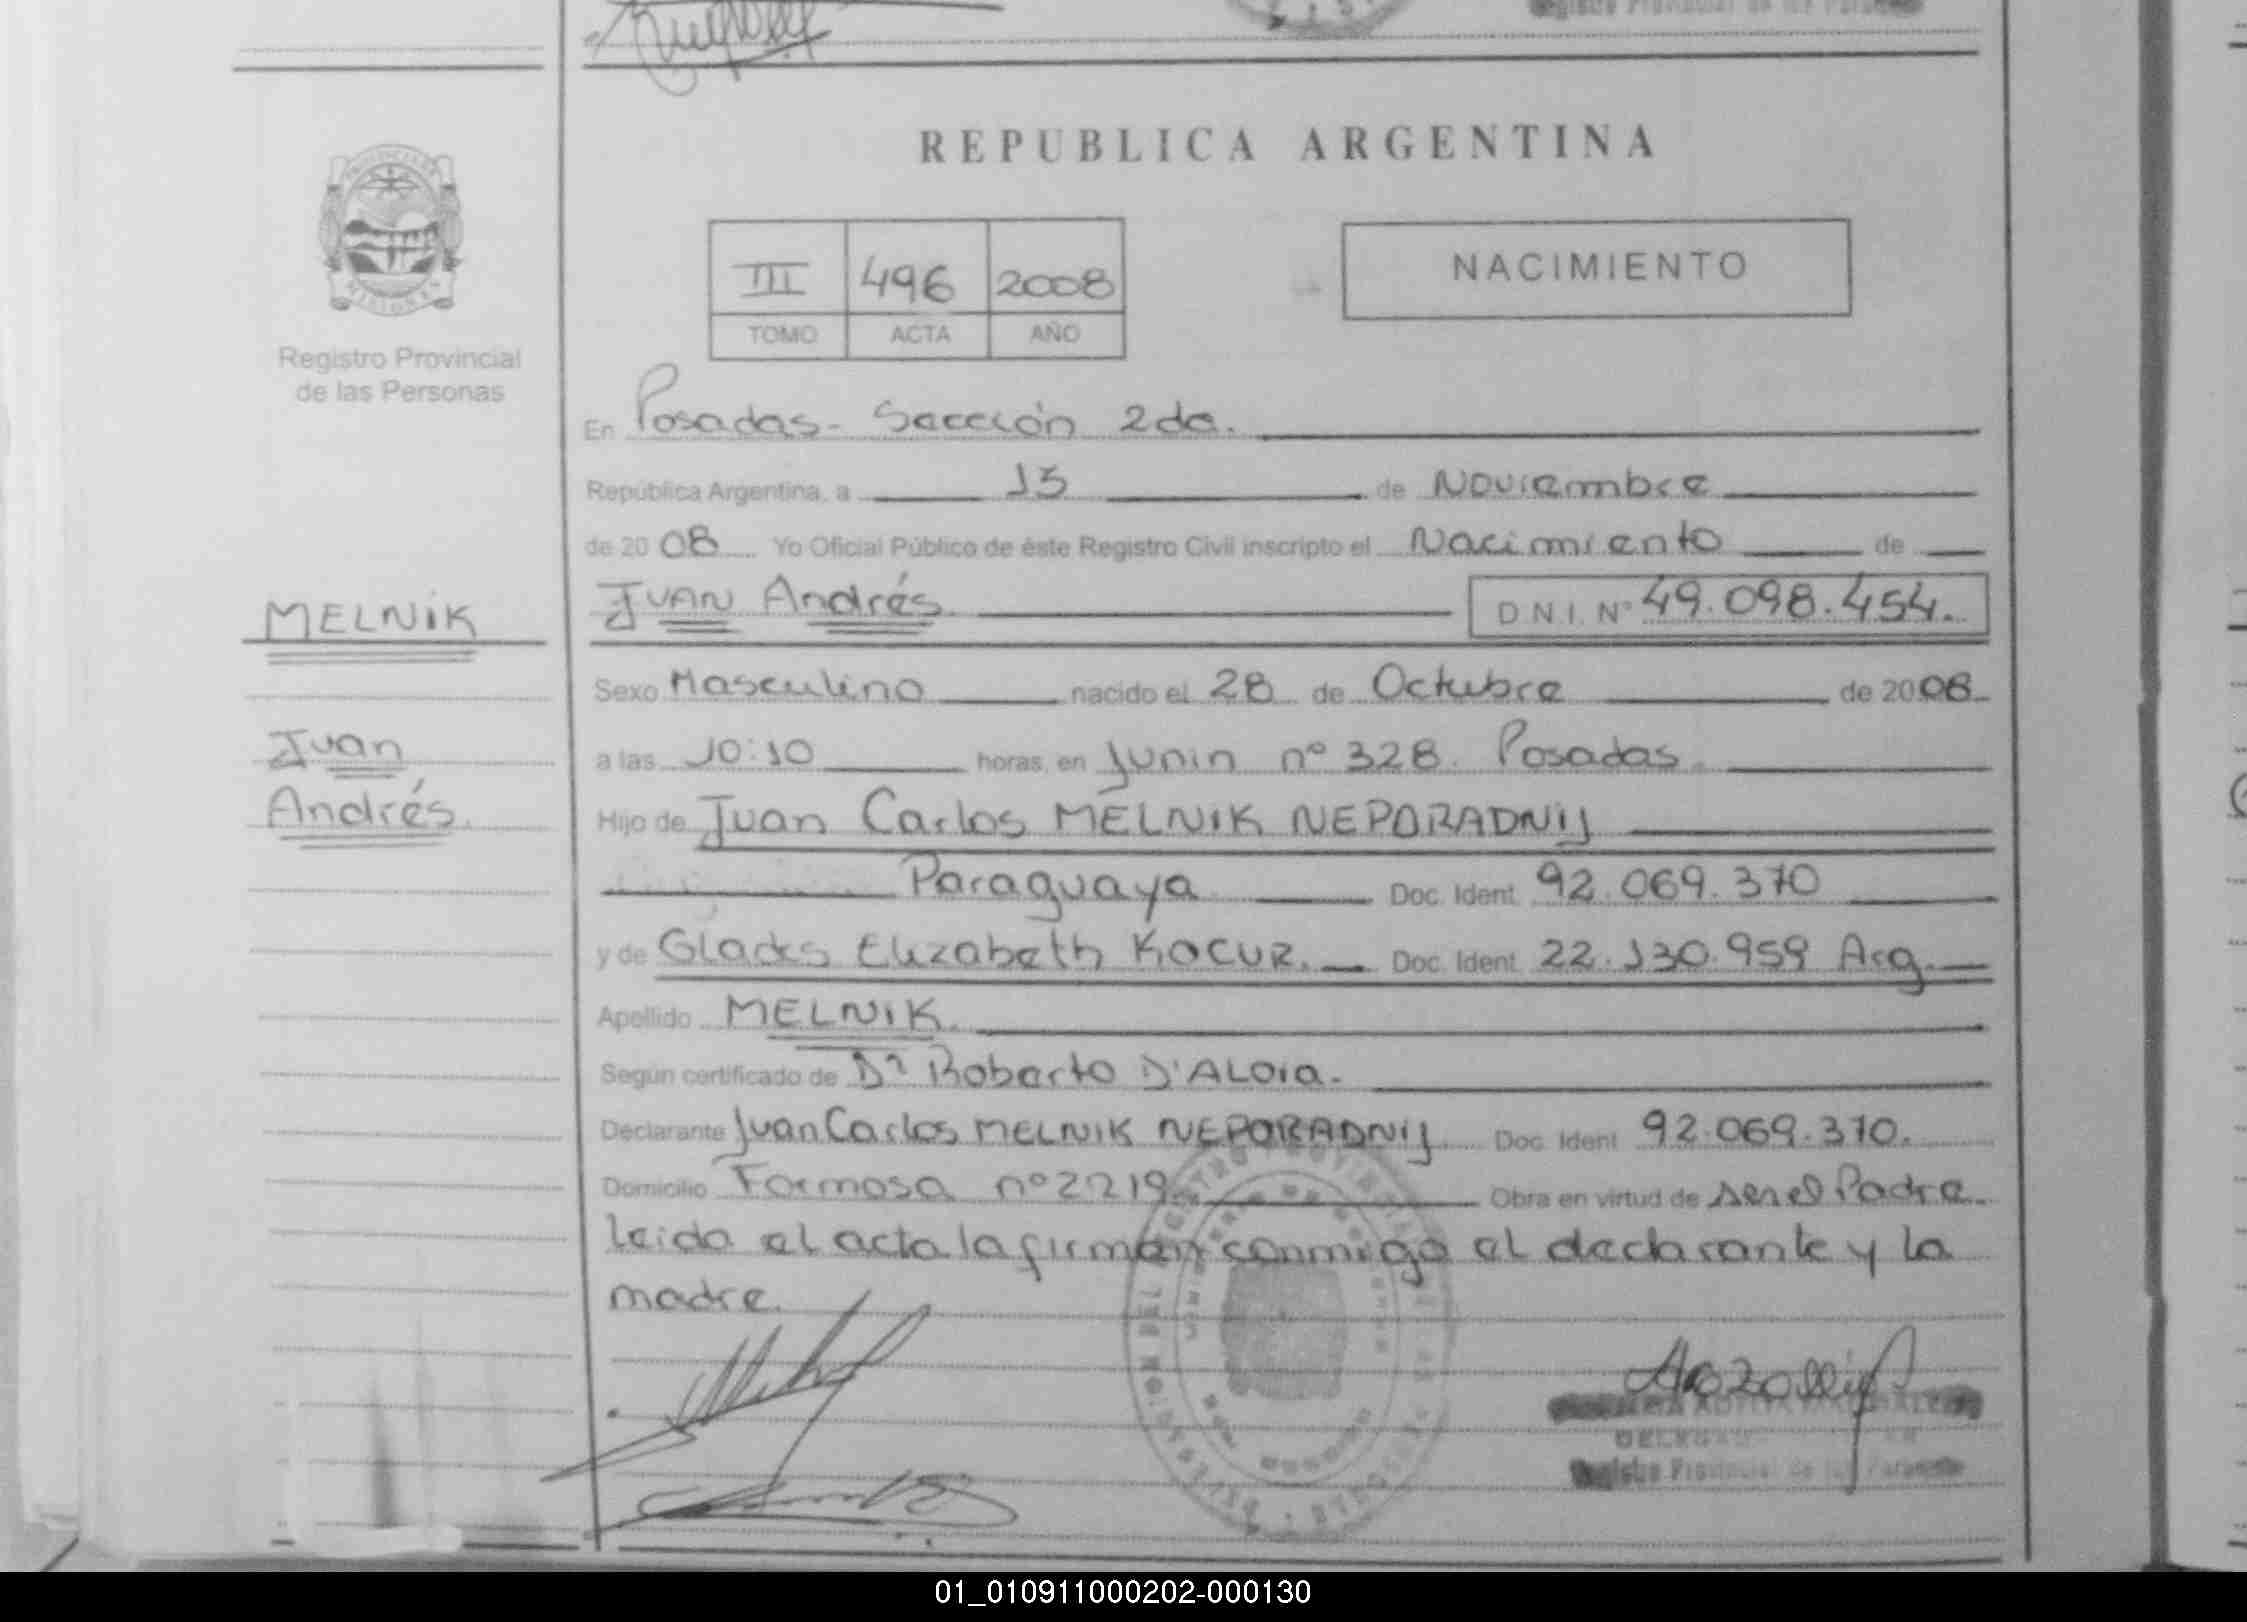 REPUBLICA ARGENTINA
NACIMIENTO
III 496 2008
TOMO ACTA AÑO
Registro Provincial
de las Personas
En Posadas - Sección 2da.
República Argentina, a 13 de Noviembre
de 20 08 Yo Oficial Público de éste Registro Civil inscripto el Nacimiento de
MELNIK
Juan Andrés D.N.I. Nº 49.098.454.
Sexo Masculino nacido el 28 de Octubre de 20 08
Juan
a las 10:10 horas, en Junin nº 328. Posadas.
Andrés.
Hijo de Juan Carlos MELNIK NEPORADNIJ
Paraguaya Doc. Ident. 92.069.370
y de Gladis Elizabeth KOCUR. Doc. Ident. 22.130.959 Arg.
Apellido MELNIK.
Según certificado de Dr Roberto D'ALOIA.
Declarante Juan Carlos MELNIK NEPORADNIJ Doc. Ident 92.069.370.
Domicilio Formosa nº 2219 Obra en virtud de ser el Padre
leida el acta la firman conmigo el declarante y la
madre.
Registro Provincial de las Personas
01_010911000202-000130